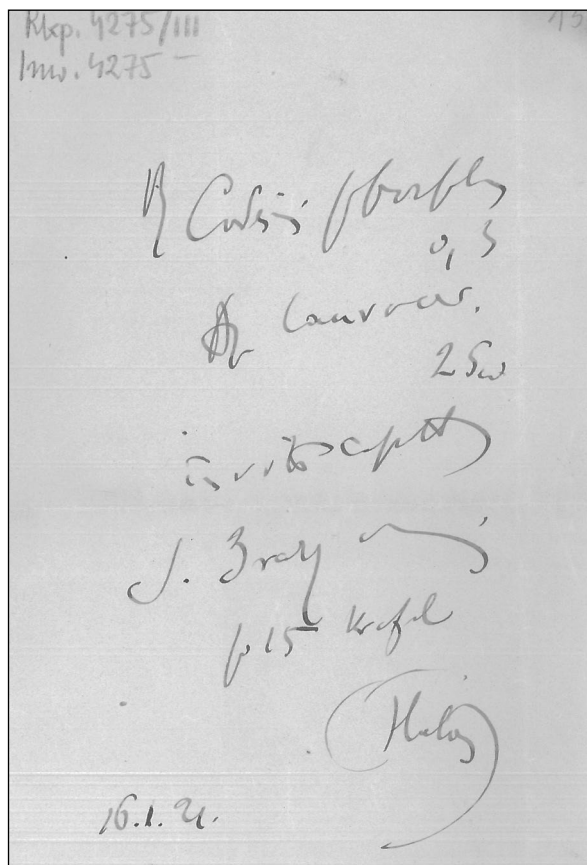 Rkp. 4275/III
Inw. 4275
15
Codeini phosph
0,3
Aq Lauroc.
25,0
in vitro
S. 3 razy
po 15 kropel
16.1.21.